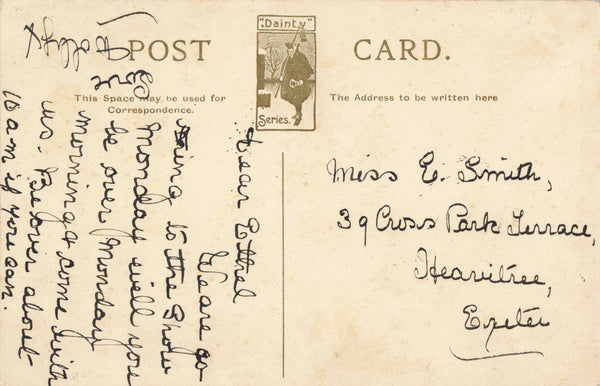 POST CARD.
"Dainty"
Series.
This Space may be used for
Correspondence.
The Address to be written here
Dear Ethel
We are go
ing to the Show
Monday will you
be over Monday
morning & come with
us. Be over about
10 am if you can.
Miss E. Smith,
39 Cross Park Terrace,
Heavitree,
Exeter